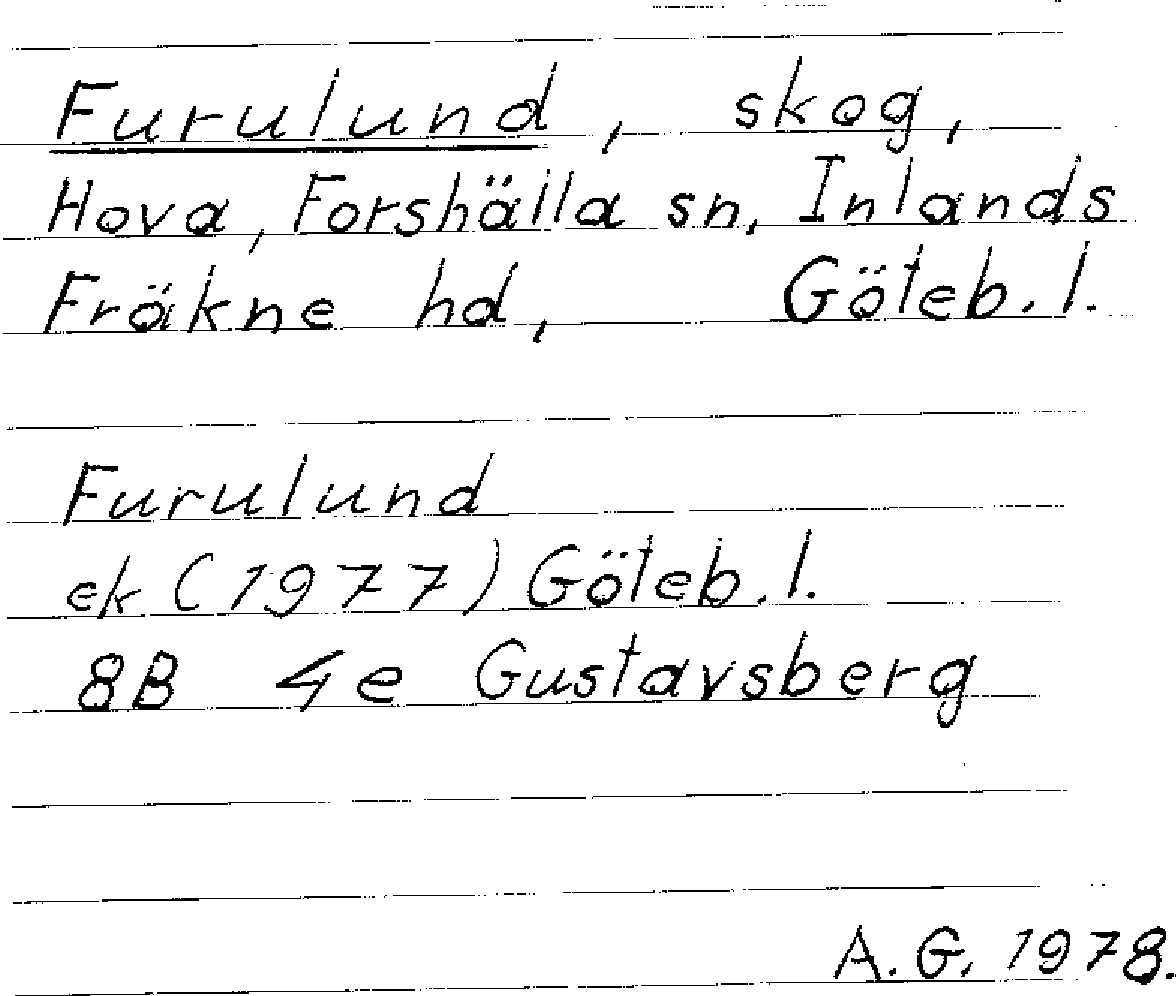 Furulund, skog,
Hova, Forshälla sn, Inlands
Fräkne hd, Göteb. l.
Furulund
ek (1977) Göteb. l.
8B 4e Gustavsberg
A. G. 1978.